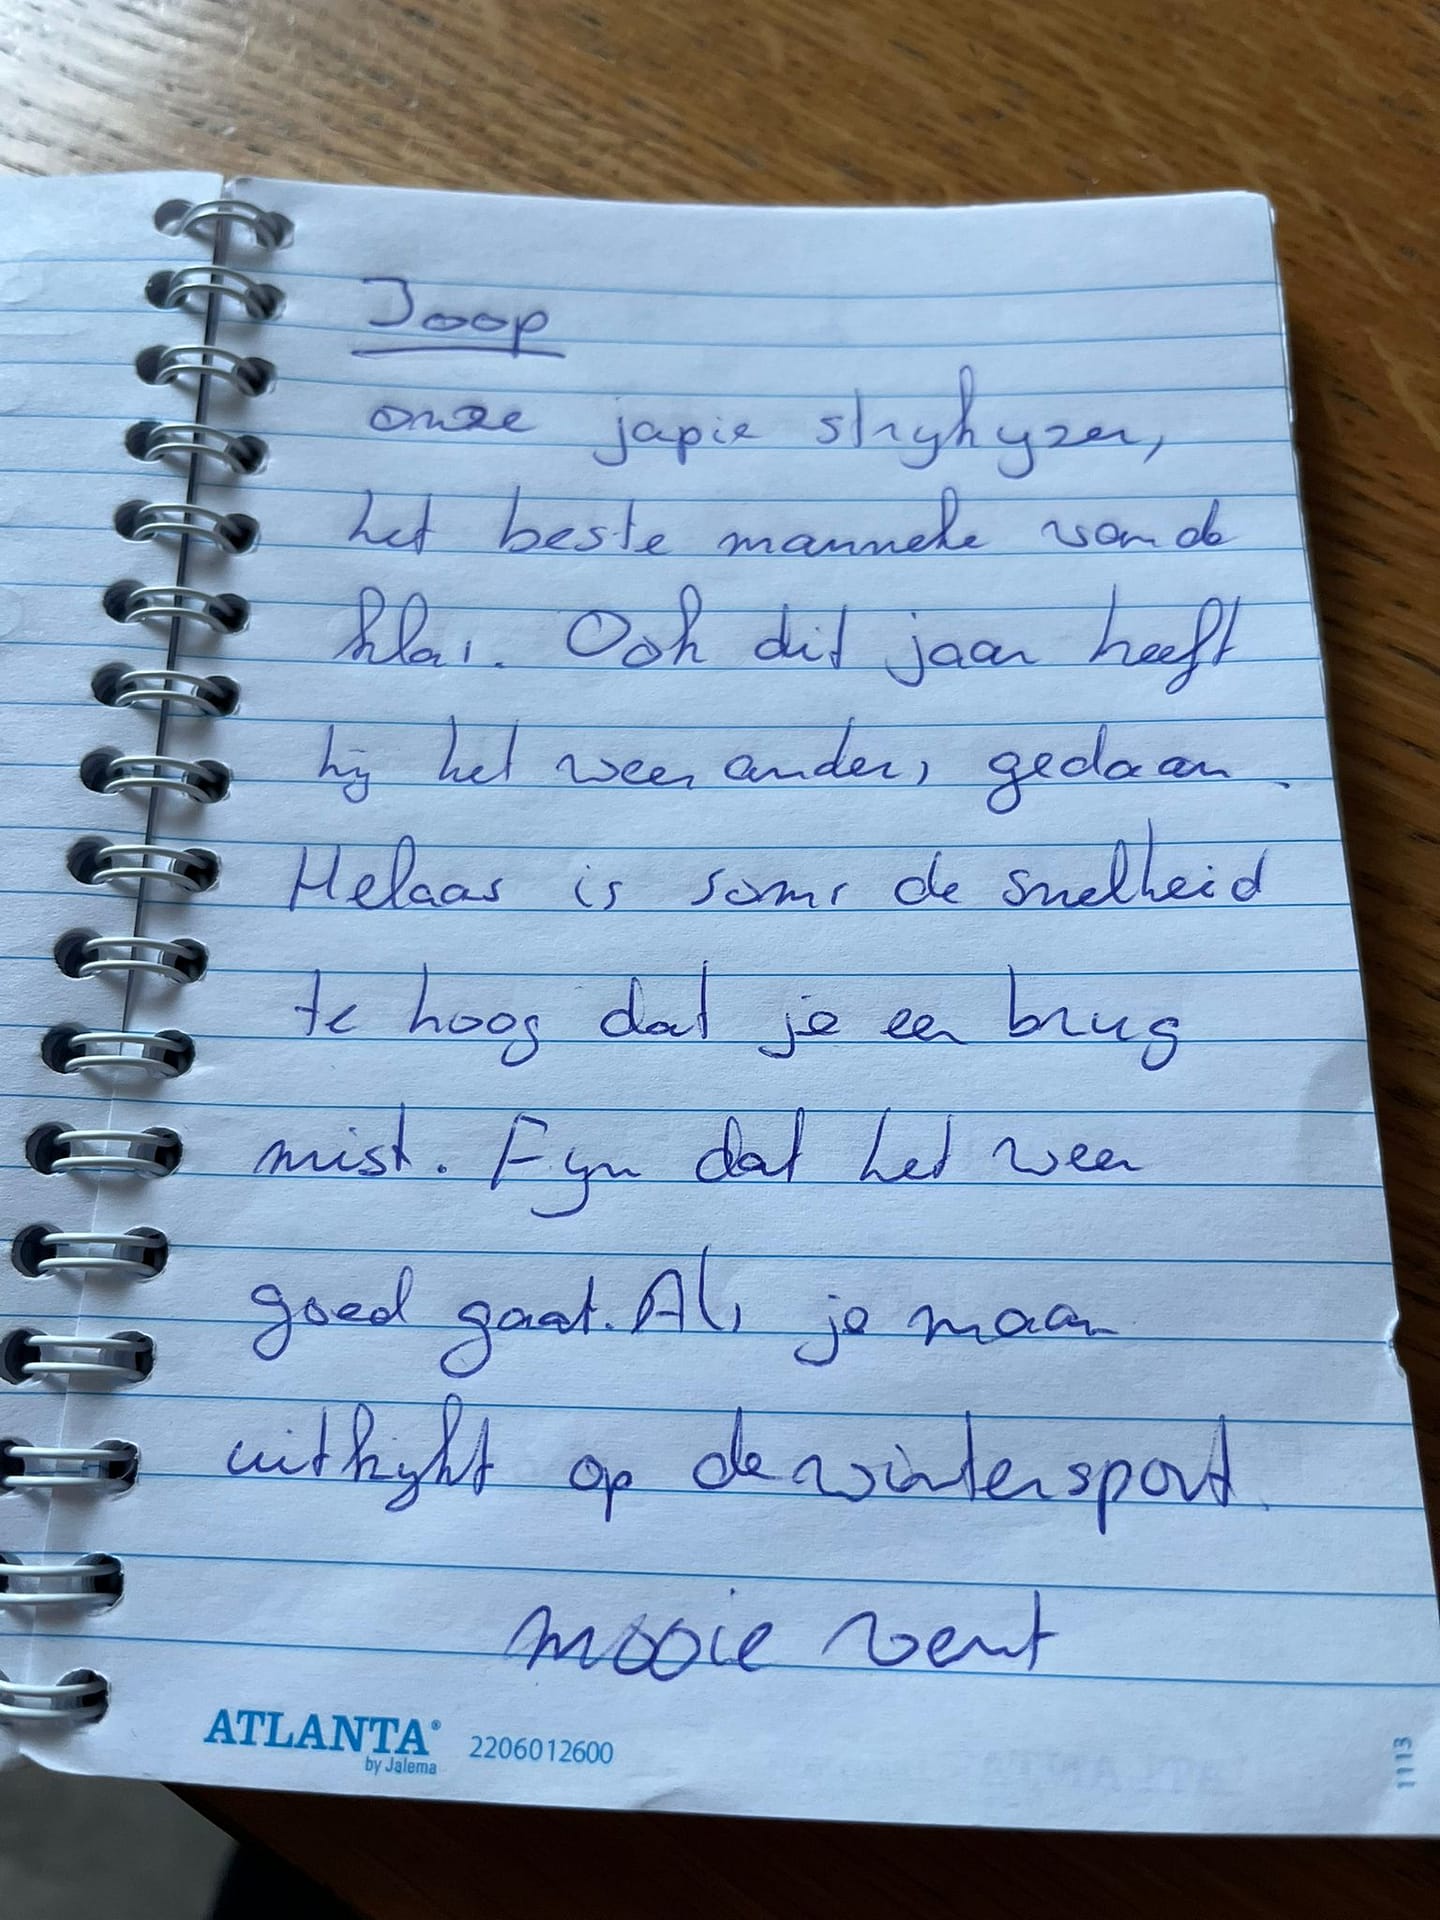 Joop
onze japie strykyzer,
het beste manneke van de
klai. Ook dit jaar heeft
hij het weer anders gedaan.
Helaas is soms de snelheid
te hoog dat je een brug
mist. Fyn dat het weer
goed gaat. Als je maar
uitkykt op de wintersport.
mooie vent
ATLANTA®
by Jalema
2206012600
1113